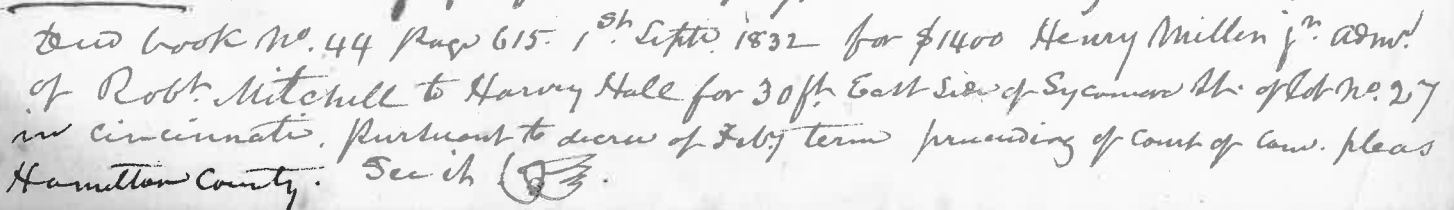 Deed book No. 44 page 615. 1st Septr. 1832 for $1400 Henry Miller jr. admr.
of Robt. Mitchell to Harvey Hall for 30 ft. East side of Sycamore St. of lot No. 27
in Cincinnati. Pursuant to decree of Feby term preceeding of Court of Com. pleas
Hamilton County. See it